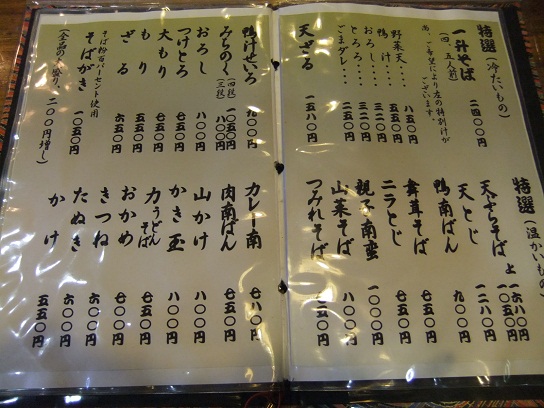 特選（冷たいもの）
一升そば 二四〇〇円
（四、五人前）
尚、ご希望により左の特別汁が
ございます。
野菜天‥‥ 八五〇円
鴨汁‥‥ 五〇〇円
おろし‥‥ 三二〇円
とろろ‥‥ 三二〇円
ごまダレ‥‥
天ざる 一五八〇円
特選（温かいもの）
天ぷらそば 上 一六八〇円
一二八〇円
天とじ
鴨南ばん
舞茸そば
ニラとじ
親子南蛮
山菜そば
つみれそば
鴨汁せいろ 九〇〇円
みちのく（四段） 一〇五〇円
（三段） 八〇〇円
おろし 八〇〇円
つけとろ 八〇〇円
大もり 七五〇円
もり 五五〇円
ざる 六五〇円
そば粉百パーセント使用
そばがき 一〇五〇円
二〇〇円増し）
カレー南 七八〇円
肉南ばん 七五〇円
山かけ 八〇〇円
かき玉 八〇〇円
力うどん
そば 七五〇円
おかめ 七〇〇円
きつね 六〇〇円
たぬき 六〇〇円
かけ 五五〇円